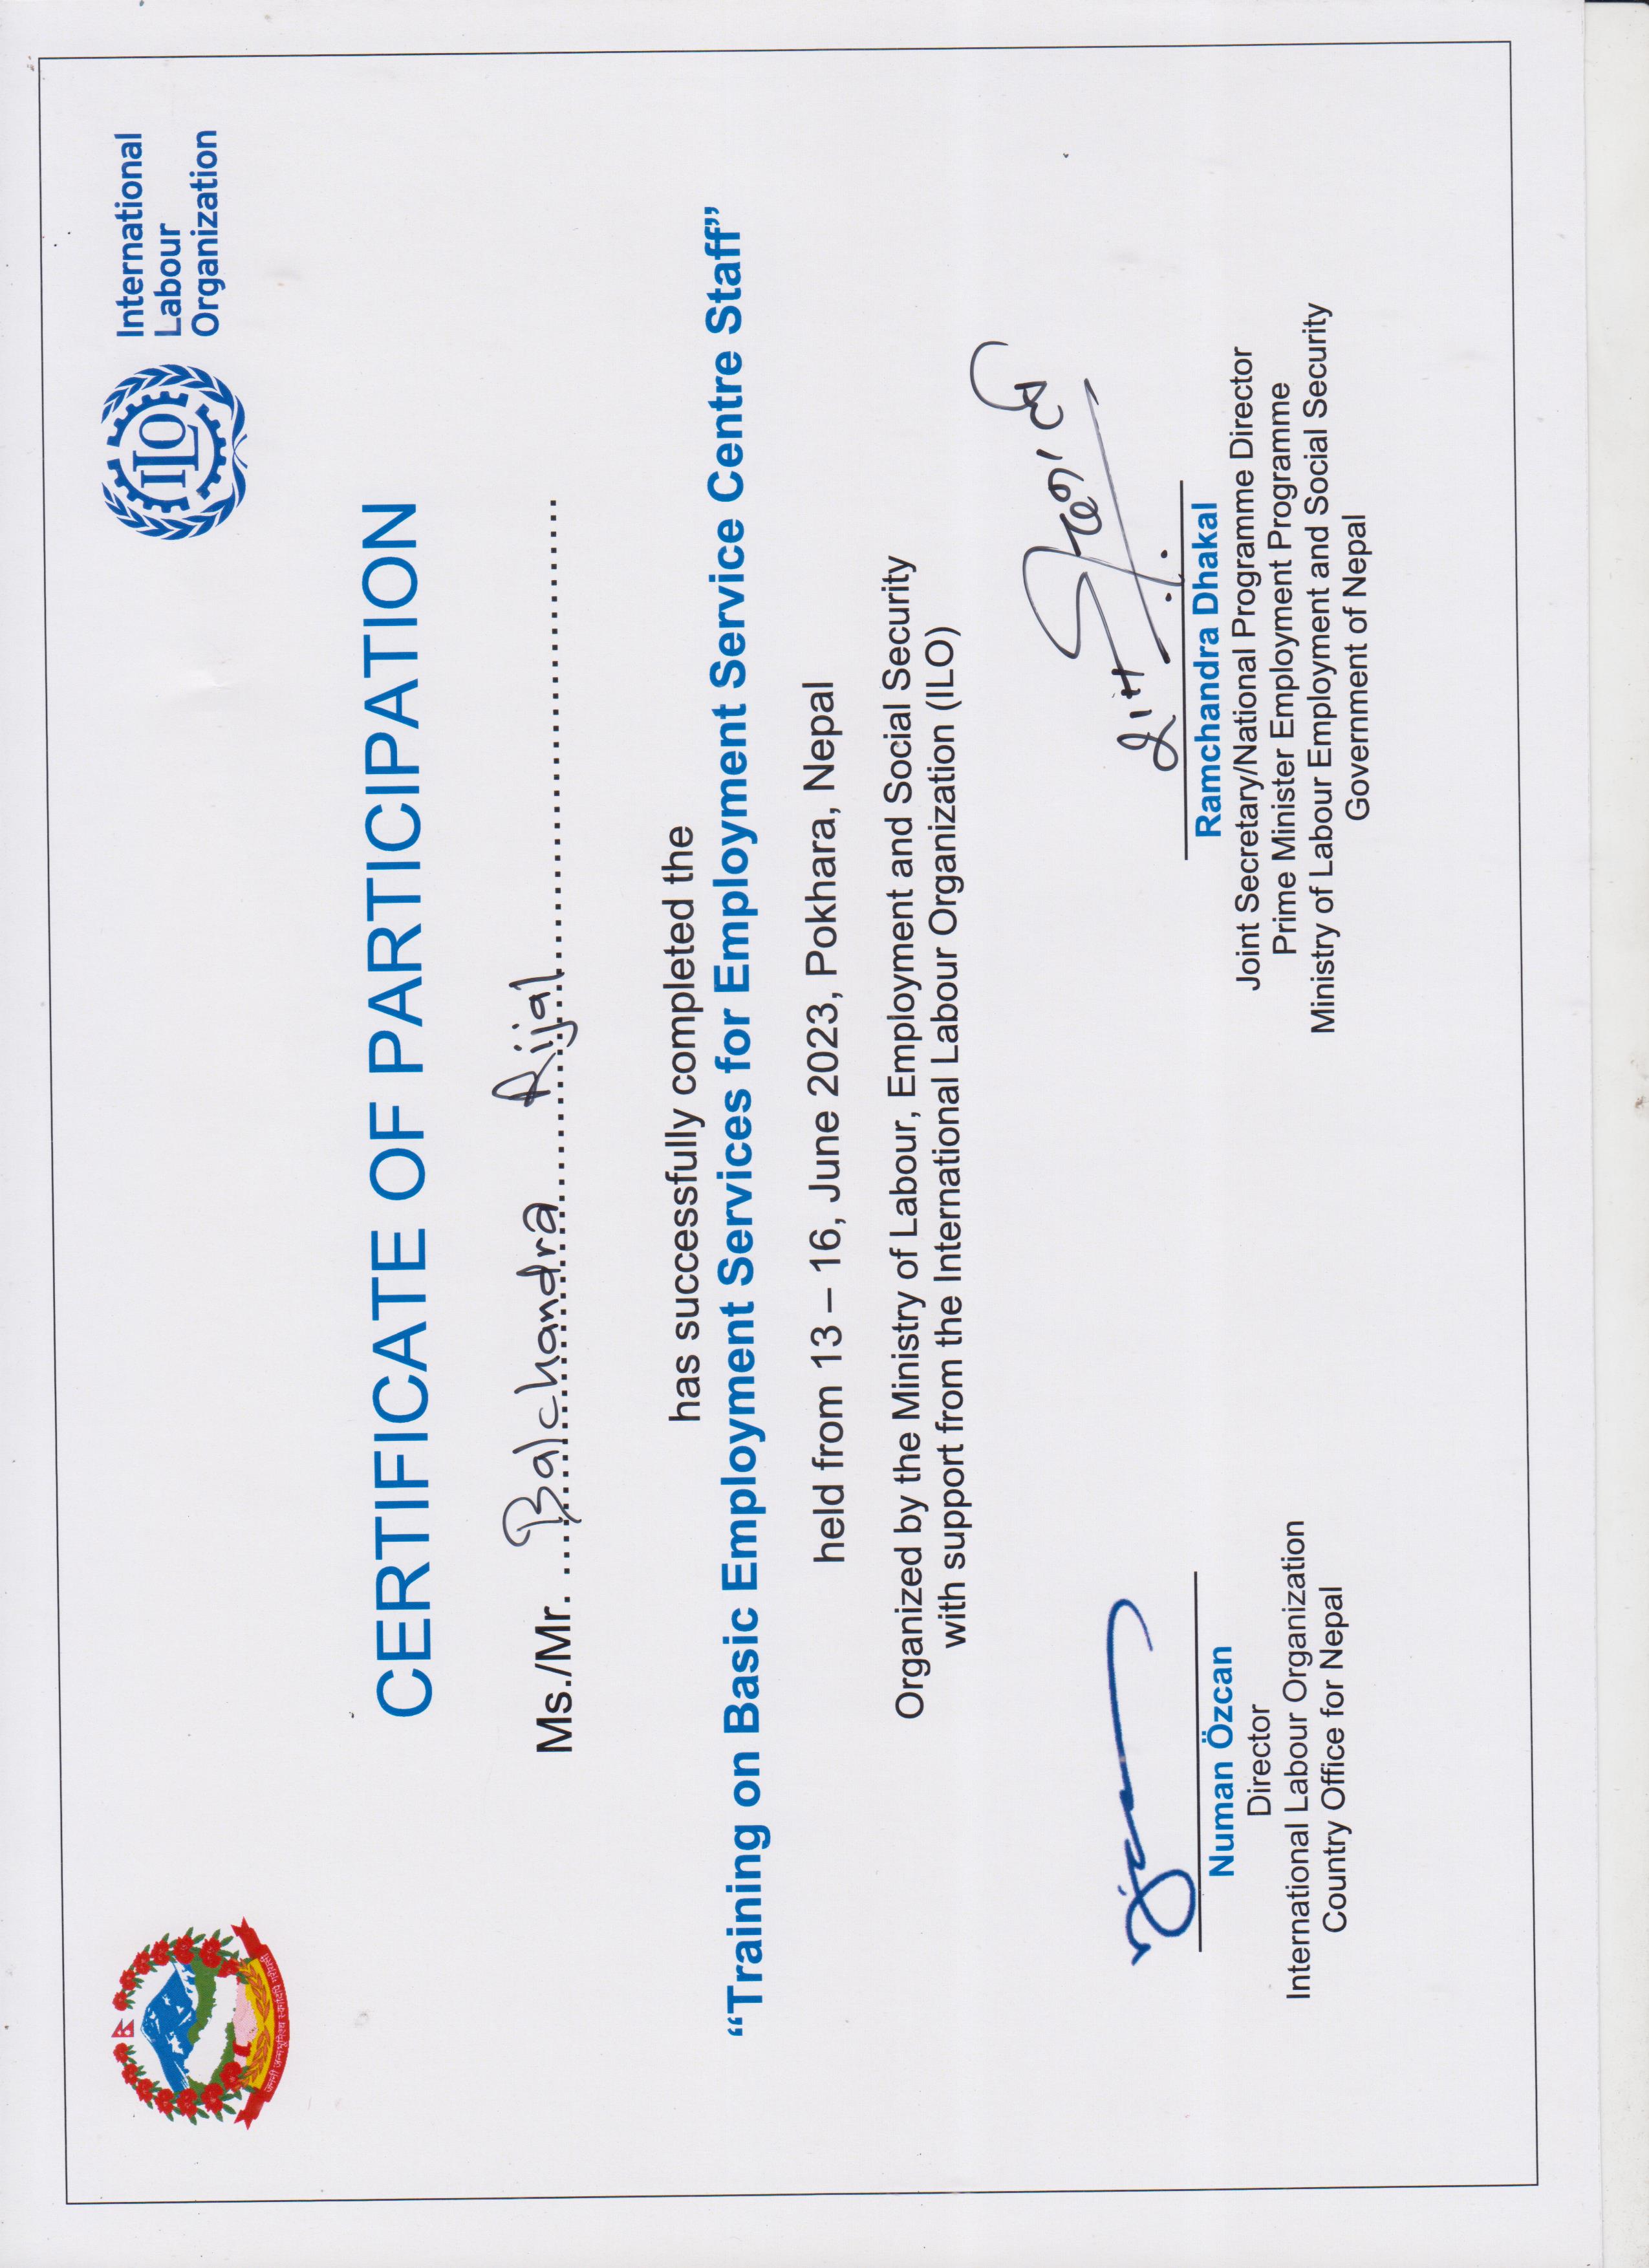 जननी जन्मभूमिश्च स्वर्गादपि गरीयसी
ILO
International
Labour
Organization
CERTIFICATE OF PARTICIPATION
Ms./Mr. ....Balchandra Rijal....
has successfully completed the
“Training on Basic Employment Services for Employment Service Centre Staff”
held from 13 – 16, June 2023, Pokhara, Nepal
Organized by the Ministry of Labour, Employment and Social Security
with support from the International Labour Organization (ILO)
Numan Özcan
Director
International Labour Organization
Country Office for Nepal
Ramchandra Dhakal
Joint Secretary/National Programme Director
Prime Minister Employment Programme
Ministry of Labour Employment and Social Security
Government of Nepal